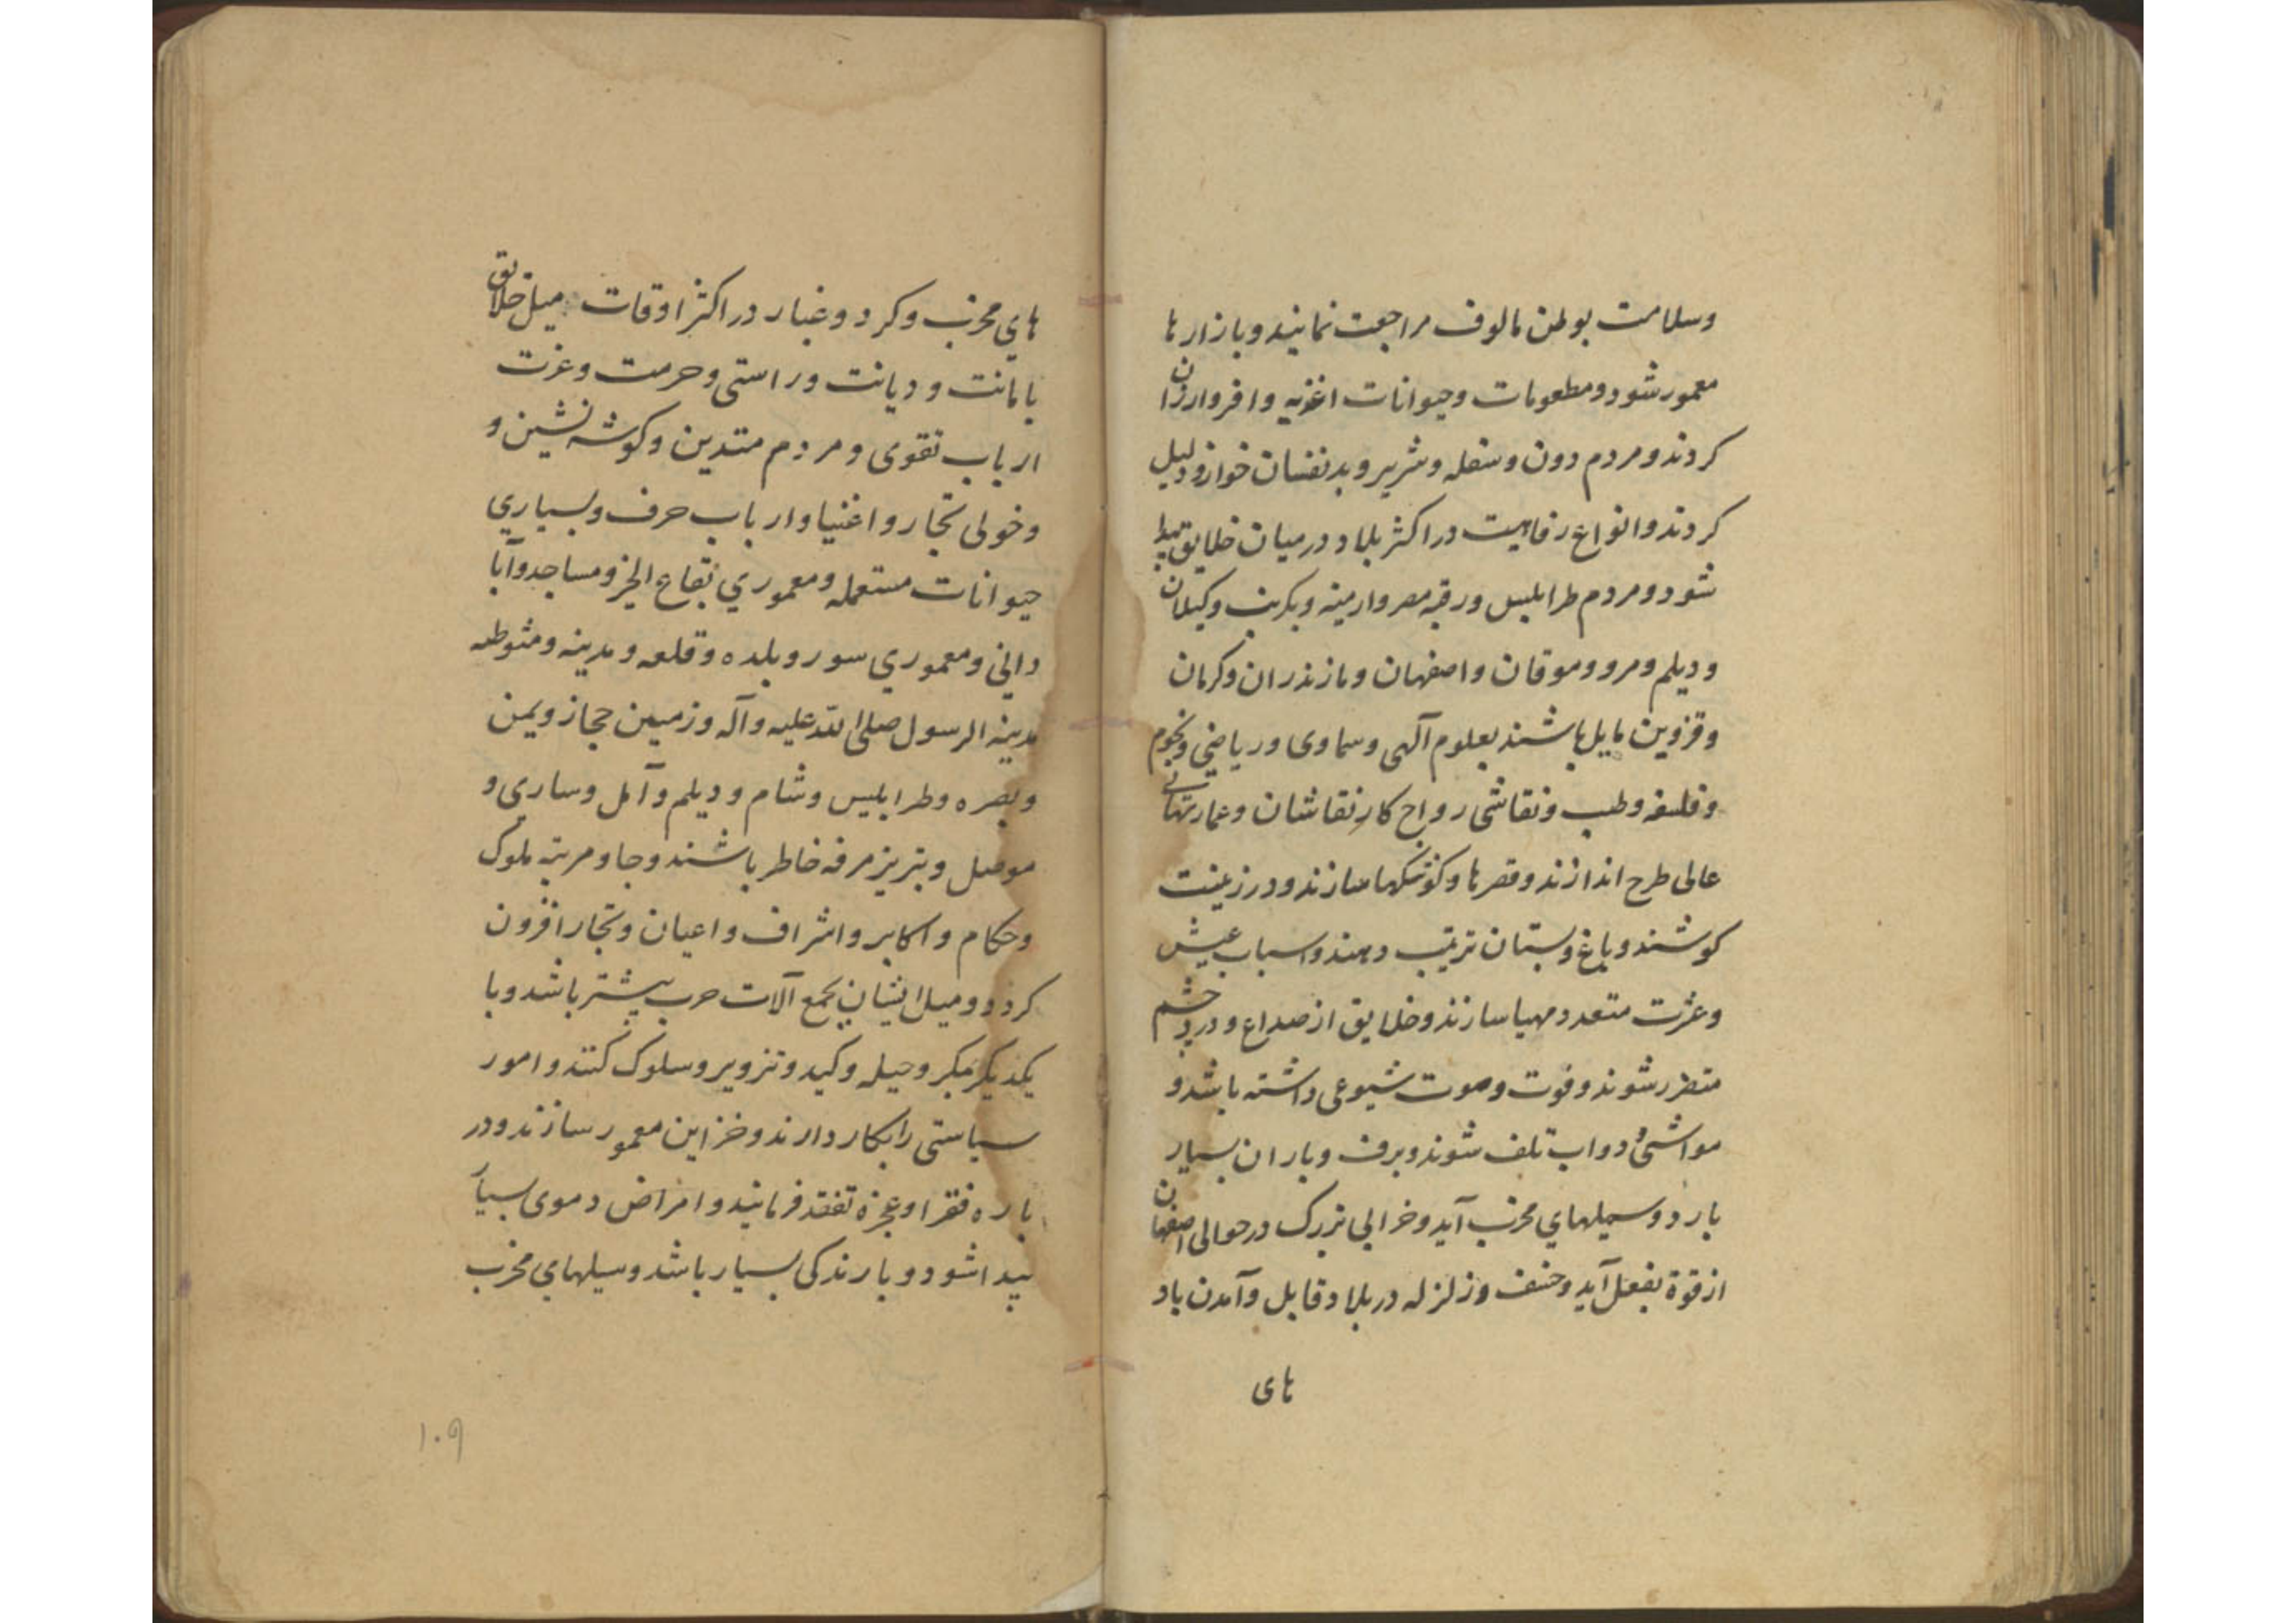 وسلامت بوطن مالوف مراجعت نمایند و بازارها
معمور شود و مطعومات وحیوانات اغذیه وافر وارزان
کردند و مردم دون وسفله وشریر و بدنفسان خوار و ذلیل
کردند وانواع رفاهیت در اکثر بلاد و درمیان خلایق پیدا
شود و مردم طرابلیس ورقه مصر وارمینه وبکریت وکیلان
ودیلم ومرو وموقان واصفهان ومازندران وکرمان
وقزوین مایل باشند بعلوم آلهی وسماوی وریاضی ونجوم
وفلسفه وطب ونقاشی رواج کار نقاشان وعمارتهای
عالی طرح اندازند وقصرها وکوشکها سازند ودر زینت
کوشند وباغ وبستان ترتیب دهند واسباب عیش
وعشرت متعدد مهیا سازند وخلایق از صداع ودرد چشم
متضرر شوند وفوت وموت شیوعی داشته باشد و
مواشی ودواب تلف شوند وبرف وباران بسیار
بارد وسیلهاي مخرب آید وخرابی بزرک درحوالی اصفهان
از قوة بفعل آید وخسف وزلزله در بلاد قابل وآمدن باد
های
هاي مخرب وکرد وغبار در اکثر اوقات میل خلایق
بامانت ودیانت وراستی وحرمت وعزت
ارباب تقوی ومردم متدین وکوشه نشین و
وخولی تجار واغنیا وارباب حرف وبسیاري
حیوانات مستعمله ومعموري بقاع الخیر ومساجد وآبا
داني ومعموري سور وبلده وقلعه ومدینه ومثوطه
مدینه الرسول صلی الله علیه وآله وزمین حجاز ویمن
وبصره وطرابلیس وشام ودیلم وآمل وساری و
موصل وتبریز مرفه خاطر باشند وجا ومرتبه ملوک
وحکام واکابر واشراف واعیان وتجار افزون
کردد ومیل ایشان بجمع آلات حرب بیشتر باشد وبا
یکدیکر مکر وحیله وکید وتزویر وسلوک کنند وامور
سیاستی را بکار دارند وخزاین معمور سازند ودر
باره فقرا وعجزه تفقد فرمایند وامراض دموی بسیار
پیدا شود وبارندکی بسیار باشد وسیلهاي مخرب
۱۰۹